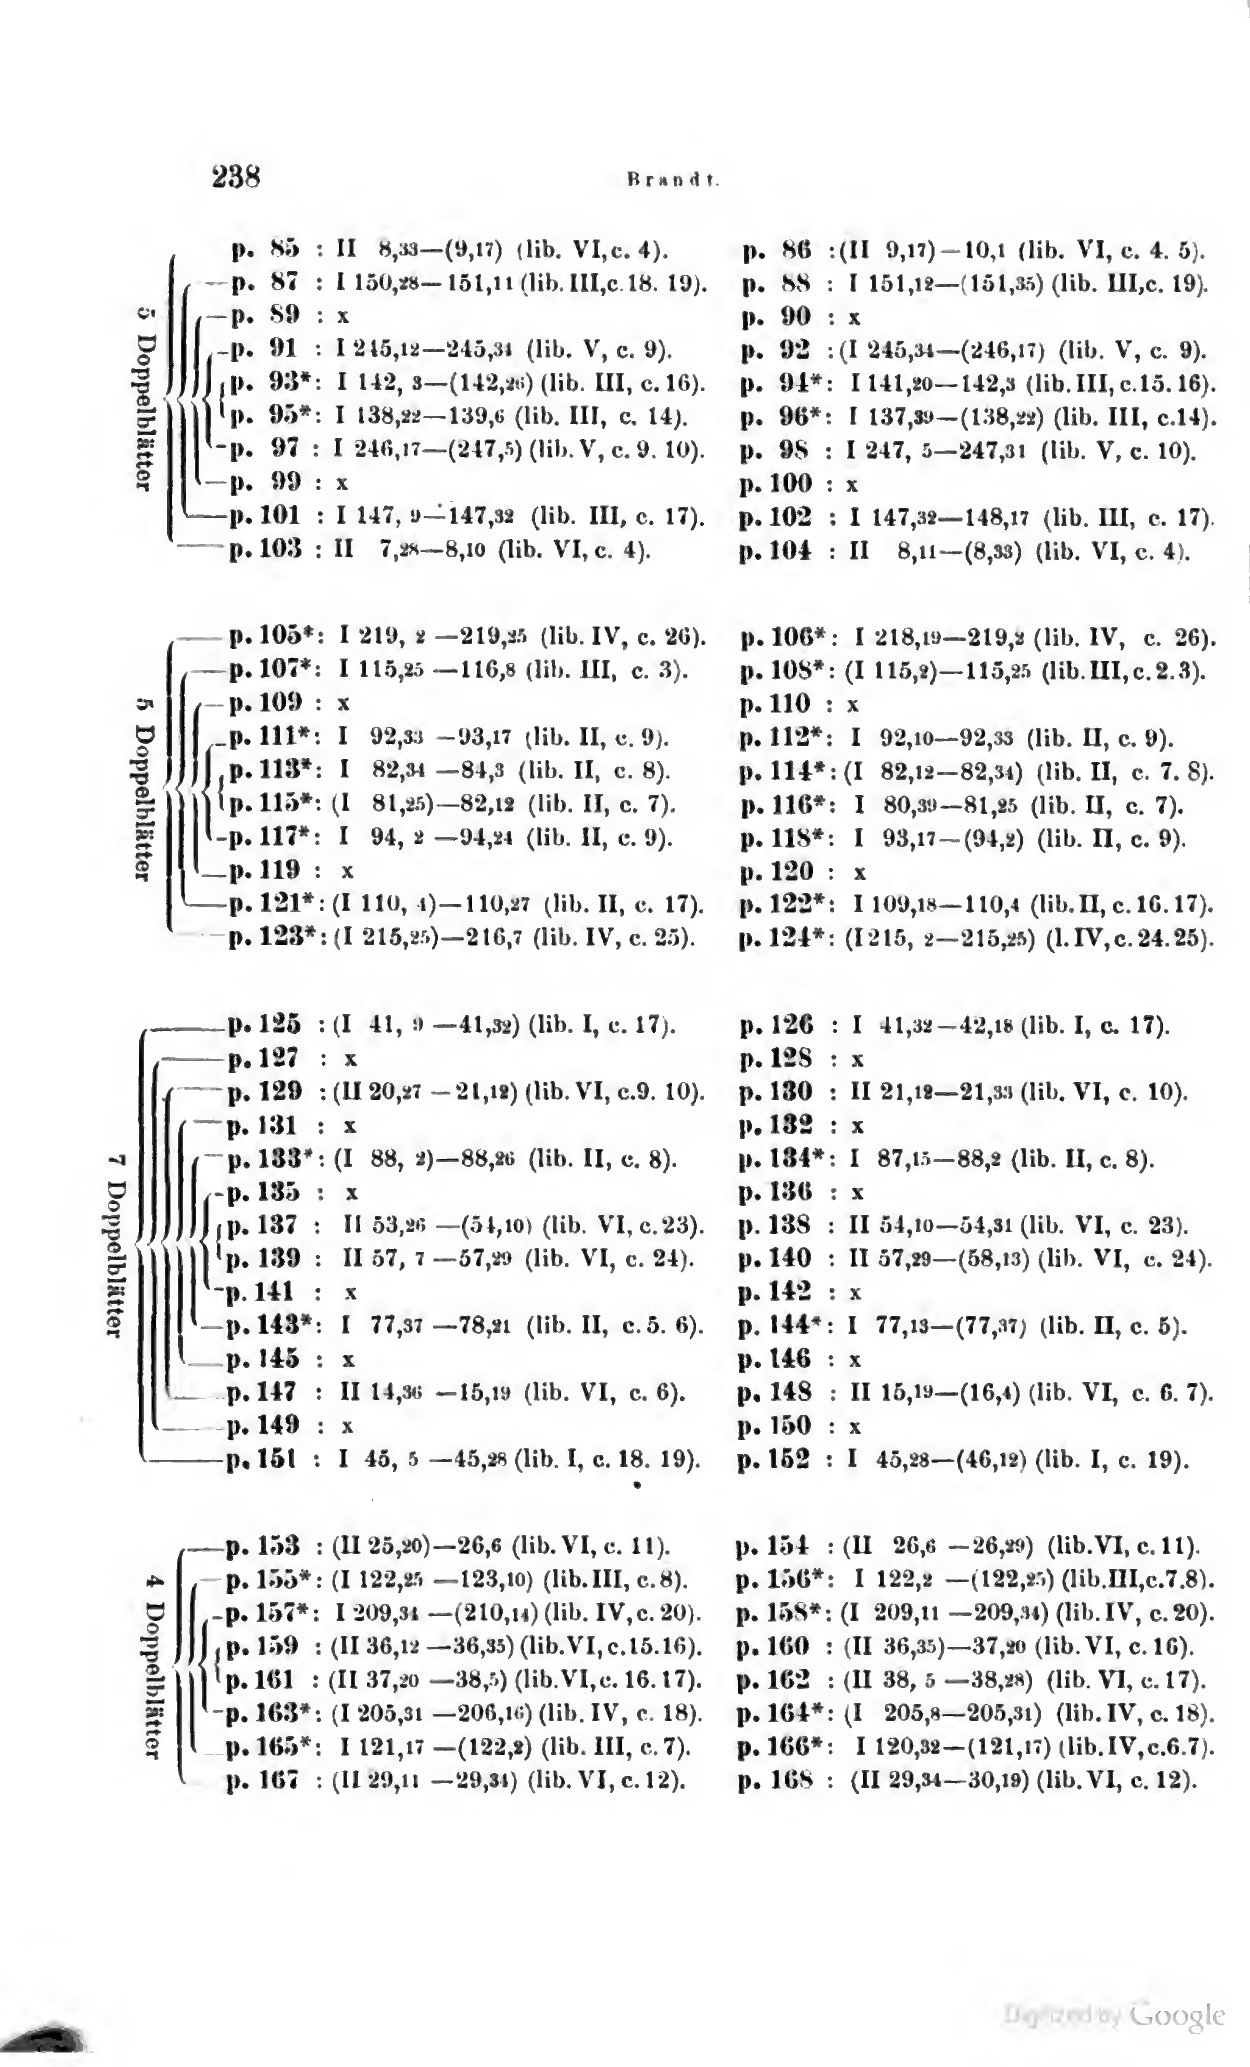 238 Brandt.
5 Doppelblätter
p. 85 : II 8,33—(9,17) (lib. VI, c. 4). p. 86 : (II 9,17)—10,1 (lib. VI, c. 4. 5).
p. 87 : I 150,28—151,11 (lib. III, c. 18. 19). p. 88 : I 151,12—(151,35) (lib. III, c. 19).
p. 89 : x p. 90 : x
p. 91 : I 245,12—245,34 (lib. V, c. 9). p. 92 : (I 245,34—(246,17) (lib. V, c. 9).
p. 93*: I 142, 3—(142,26) (lib. III, c. 16). p. 94*: I 141,20—142,3 (lib. III, c. 15. 16).
p. 95*: I 138,22—139,6 (lib. III, c. 14). p. 96*: I 137,39—(138,22) (lib. III, c. 14).
p. 97 : I 246,17—(247,5) (lib. V, c. 9. 10). p. 98 : I 247, 5—247,31 (lib. V, c. 10).
p. 99 : x p. 100 : x
p. 101 : I 147, 9—147,32 (lib. III, c. 17). p. 102 : I 147,32—148,17 (lib. III, c. 17).
p. 103 : II 7,28—8,10 (lib. VI, c. 4). p. 104 : II 8,11—(8,33) (lib. VI, c. 4).
5 Doppelblätter
p. 105*: I 219, 2 —219,25 (lib. IV, c. 26). p. 106*: I 218,19—219,2 (lib. IV, c. 26).
p. 107*: I 115,25 —116,8 (lib. III, c. 3). p. 108*: (I 115,2)—115,25 (lib. III, c. 2. 3).
p. 109 : x p. 110 : x
p. 111*: I 92,33 —93,17 (lib. II, c. 9). p. 112*: I 92,10—92,33 (lib. II, c. 9).
p. 113*: I 82,34 —84,3 (lib. II, c. 8). p. 114*: (I 82,12—82,34) (lib. II, c. 7. 8).
p. 115*: (I 81,25)—82,12 (lib. II, c. 7). p. 116*: I 80,39—81,25 (lib. II, c. 7).
p. 117*: I 94, 2 —94,24 (lib. II, c. 9). p. 118*: I 93,17—(94,2) (lib. II, c. 9).
p. 119 : x p. 120 : x
p. 121*: (I 110, 4)—110,27 (lib. II, c. 17). p. 122*: I 109,18—110,4 (lib. II, c. 16. 17).
p. 123*: (I 215,25)—216,7 (lib. IV, c. 25). p. 124*: (I 215, 2—215,25) (l. IV, c. 24. 25).
7 Doppelblätter
p. 125 : (I 41, 9 —41,32) (lib. I, c. 17). p. 126 : I 41,32—42,18 (lib. I, c. 17).
p. 127 : x p. 128 : x
p. 129 : (II 20,27 —21,12) (lib. VI, c. 9. 10). p. 130 : II 21,12—21,33 (lib. VI, c. 10).
p. 131 : x p. 132 : x
p. 133*: (I 88, 2)—88,26 (lib. II, c. 8). p. 134*: I 87,15—88,2 (lib. II, c. 8).
p. 135 : x p. 136 : x
p. 137 : II 53,26 —(54,10) (lib. VI, c. 23). p. 138 : II 54,10—54,31 (lib. VI, c. 23).
p. 139 : II 57, 7 —57,29 (lib. VI, c. 24). p. 140 : II 57,29—(58,13) (lib. VI, c. 24).
p. 141 : x p. 142 : x
p. 143*: I 77,37 —78,21 (lib. II, c. 5. 6). p. 144*: I 77,13—(77,37) (lib. II, c. 5).
p. 145 : x p. 146 : x
p. 147 : II 14,36 —15,19 (lib. VI, c. 6). p. 148 : II 15,19—(16,4) (lib. VI, c. 6. 7).
p. 149 : x p. 150 : x
p. 151 : I 45, 5 —45,28 (lib. I, c. 18. 19). p. 152 : I 45,28—(46,12) (lib. I, c. 19).
4 Doppelblätter
p. 153 : (II 25,20)—26,6 (lib. VI, c. 11). p. 154 : (II 26,6 —26,29) (lib. VI, c. 11).
p. 155*: (I 122,25 —123,10) (lib. III, c. 8). p. 156*: I 122,2 —(122,25) (lib. III, c. 7. 8).
p. 157*: I 209,34 —(210,14) (lib. IV, c. 20). p. 158*: (I 209,11 —209,34) (lib. IV, c. 20).
p. 159 : (II 36,12 —36,35) (lib. VI, c. 15. 16). p. 160 : (II 36,35)—37,20 (lib. VI, c. 16).
p. 161 : (II 37,20 —38,5) (lib. VI, c. 16. 17). p. 162 : (II 38, 5 —38,28) (lib. VI, c. 17).
p. 163*: (I 205,31 —206,16) (lib. IV, c. 18). p. 164*: (I 205,8—205,31) (lib. IV, c. 18).
p. 165*: I 121,17 —(122,2) (lib. III, c. 7). p. 166*: I 120,32—(121,17) (lib. IV, c. 6. 7).
p. 167 : (II 29,11 —29,34) (lib. VI, c. 12). p. 168 : (II 29,34—30,19) (lib. VI, c. 12).
Digitized by Google